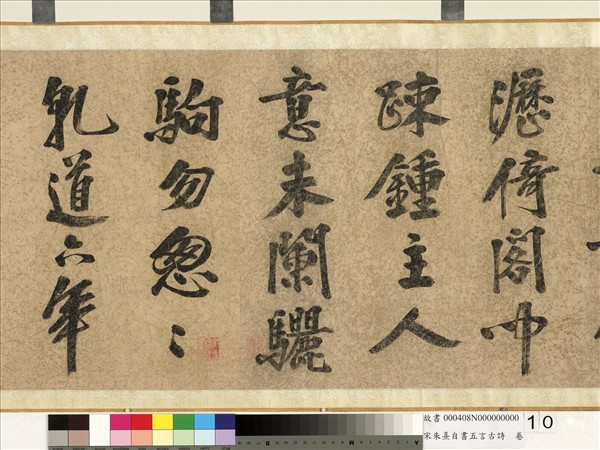 瀝倚閣中
疎鍾主人
意未闌驪
駒勿匆〻
乹道六年
故書 000408N000000000
宋朱熹自書五言古詩 卷
10